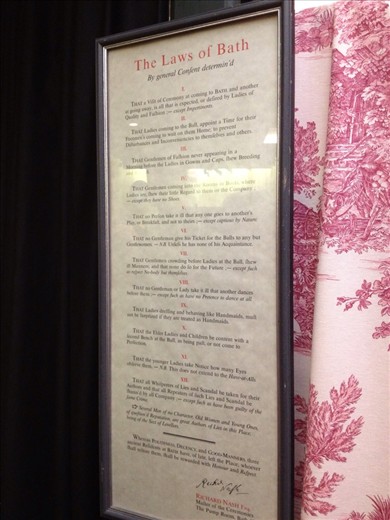 The Laws of Bath
By general Consent determin'd
I.
THAT a Visit of Ceremony at coming to BATH and another
at going away, is all that is expected, or desired by Ladies of
Quality and Fashion :— except Impertinents.
II.
THAT Ladies coming to the Ball, appoint a Time for their
Footmen's coming to wait on them Home, to prevent
Disturbances and Inconveniencies to themselves and others.
III.
THAT Gentlemen of Fashion never appearing in a
Morning before the Ladies in Gowns and Caps, shew Breeding
Ladies are, shew their little Regard to them or the Company
:— except they have no Shoes.
THAT no Person take it ill that any one goes to another's
Play, or Breakfast, and not to theirs :— except captious by Nature.
VI.
THAT no Gentleman give his Ticket for the Balls to any but
Gentlewomen. :— N.B. Unless he has none of his Acquaintance.
VII.
THAT Gentlemen crowding before Ladies at the Ball, shew
ill Manners; and that none do so for the Future. :— except such
as respect No-body but themselves.
VIII.
THAT no Gentleman or Lady take it ill that another dances
before them :— except such as have no Pretence to dance at all.
IX.
THAT Ladies dressing and behaving like Handmaids, must
not be surprized if they are treated as Handmaids.
X.
THAT the Elder Ladies and Children be content with a
second Bench at the Ball, as being past, or not come to
Perfection.
XI.
THAT the younger Ladies take Notice how many Eyes
observe them. :— N.B. This does not extend to the Have-at-Alls
XII.
THAT all Whisperers of Lies and Scandal be taken for their
Authors and that all Repeaters of such Lies and Scandal be
Shun'd by all Company :— except such as have been guilty of the
same Crime.
Several Men of no Character, Old Women and Young Ones,
of question'd Reputation, are great Authors of Lies in this Place,
being of the Sect of Levellers.
RICHARD NASH Esq.
Master of the Ceremonies
The Pump Room, Bath